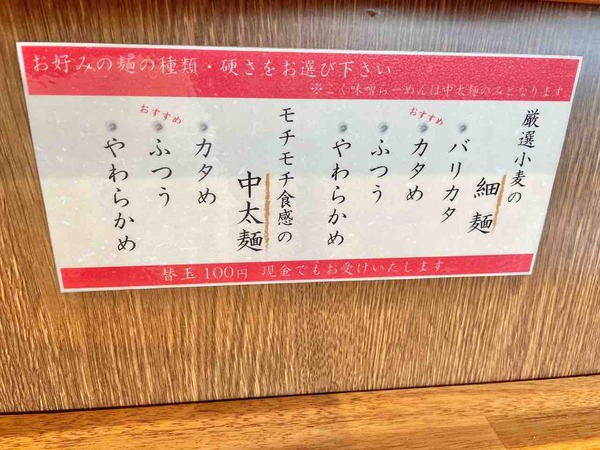 お好みの麺の種類・硬さをお選び下さい
※こく味噌らーめんは中太麺のみとなります
厳選小麦の
細麺
バリカタ
おすすめ
カタめ
ふつう
やわらかめ
モチモチ食感の
中太麺
カタめ
おすすめ
ふつう
やわらかめ
替玉100円 現金でもお受けいたします。